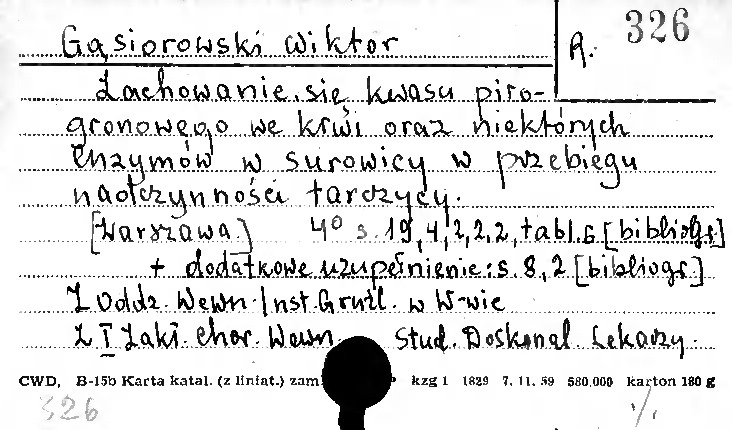 Gąsiorowski Wiktor
R. 326
Zachowanie się kwasu piro-
gronowego we krwi oraz niektórych
enzymów w surowicy w przebiegu
nadczynności tarczycy.
[Warszawa] 4° s. 19,4,2,2,2, tabl.6 [bibliogr]
+ dodatkowe uzupełnienie: s. 8,2 [bibliogr.]
Z Oddz. Wewn. Inst. Gruźl. w W-wie
Z I Zakł. Chor. Wewn. Stud. Doskonal. Lekarzy.
CWD, B-15b Karta katal. (z liniat.) zam kzg 1 1829 7. 11. 59 580.000 karton 180 g
326